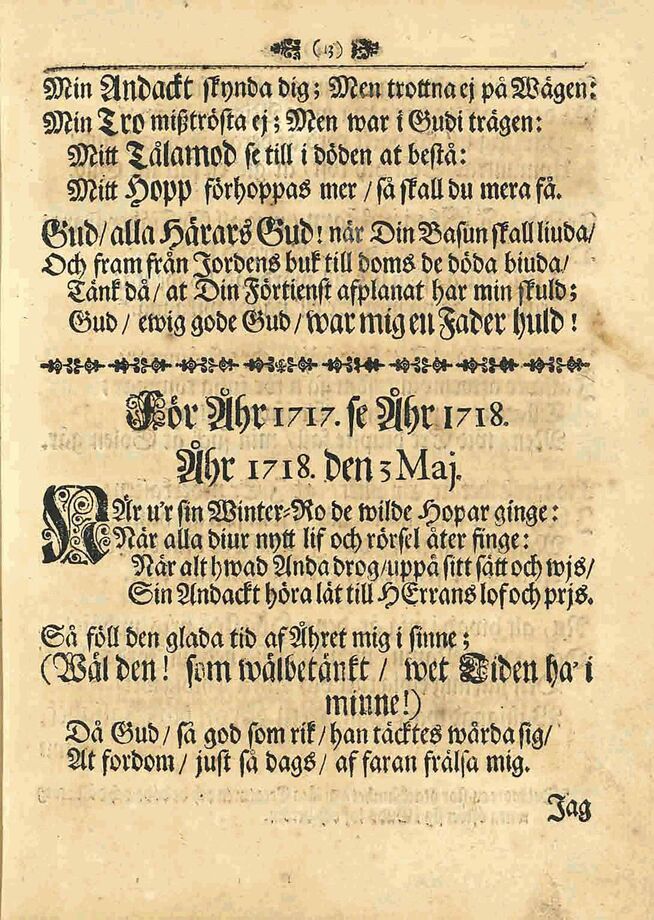 (13)
Min Andackt skynda dig; Men trottna ej på Wägen:
Min Tro mißtrösta ej; Men war i Gudi trägen:
Mitt Tålamod se till i döden at bestå:
Mitt Hopp förhoppas mer / så skall du mera få.
Gud / alla Härars Gud! när Din Basun skall liuda /
Och fram från Jordens buk till doms de döda biuda /
Tänk då / at Din Förtienst afplanat har min skuld;
Gud / ewig gode Gud / war mig en Fader huld!
För Åhr 1717. se Åhr 1718.
Åhr 1718. den 3 Maj.
När u'r sin Winter-Ro de wilde Hopar ginge:
När alla diur nytt lif och rörsel åter finge:
När alt hwad Anda drog / uppå sitt sätt och wjs /
Sin Andackt höra låt till HErrans lof och prjs.
Så föll den glada tid af Åhret mig i sinne;
(Wäl den! som wälbetänkt / wet Tiden ha' i
minne!)
Då Gud / så god som rik / han täcktes wårda sig /
At fordom / just så dags / af faran frälsa mig.
Jag